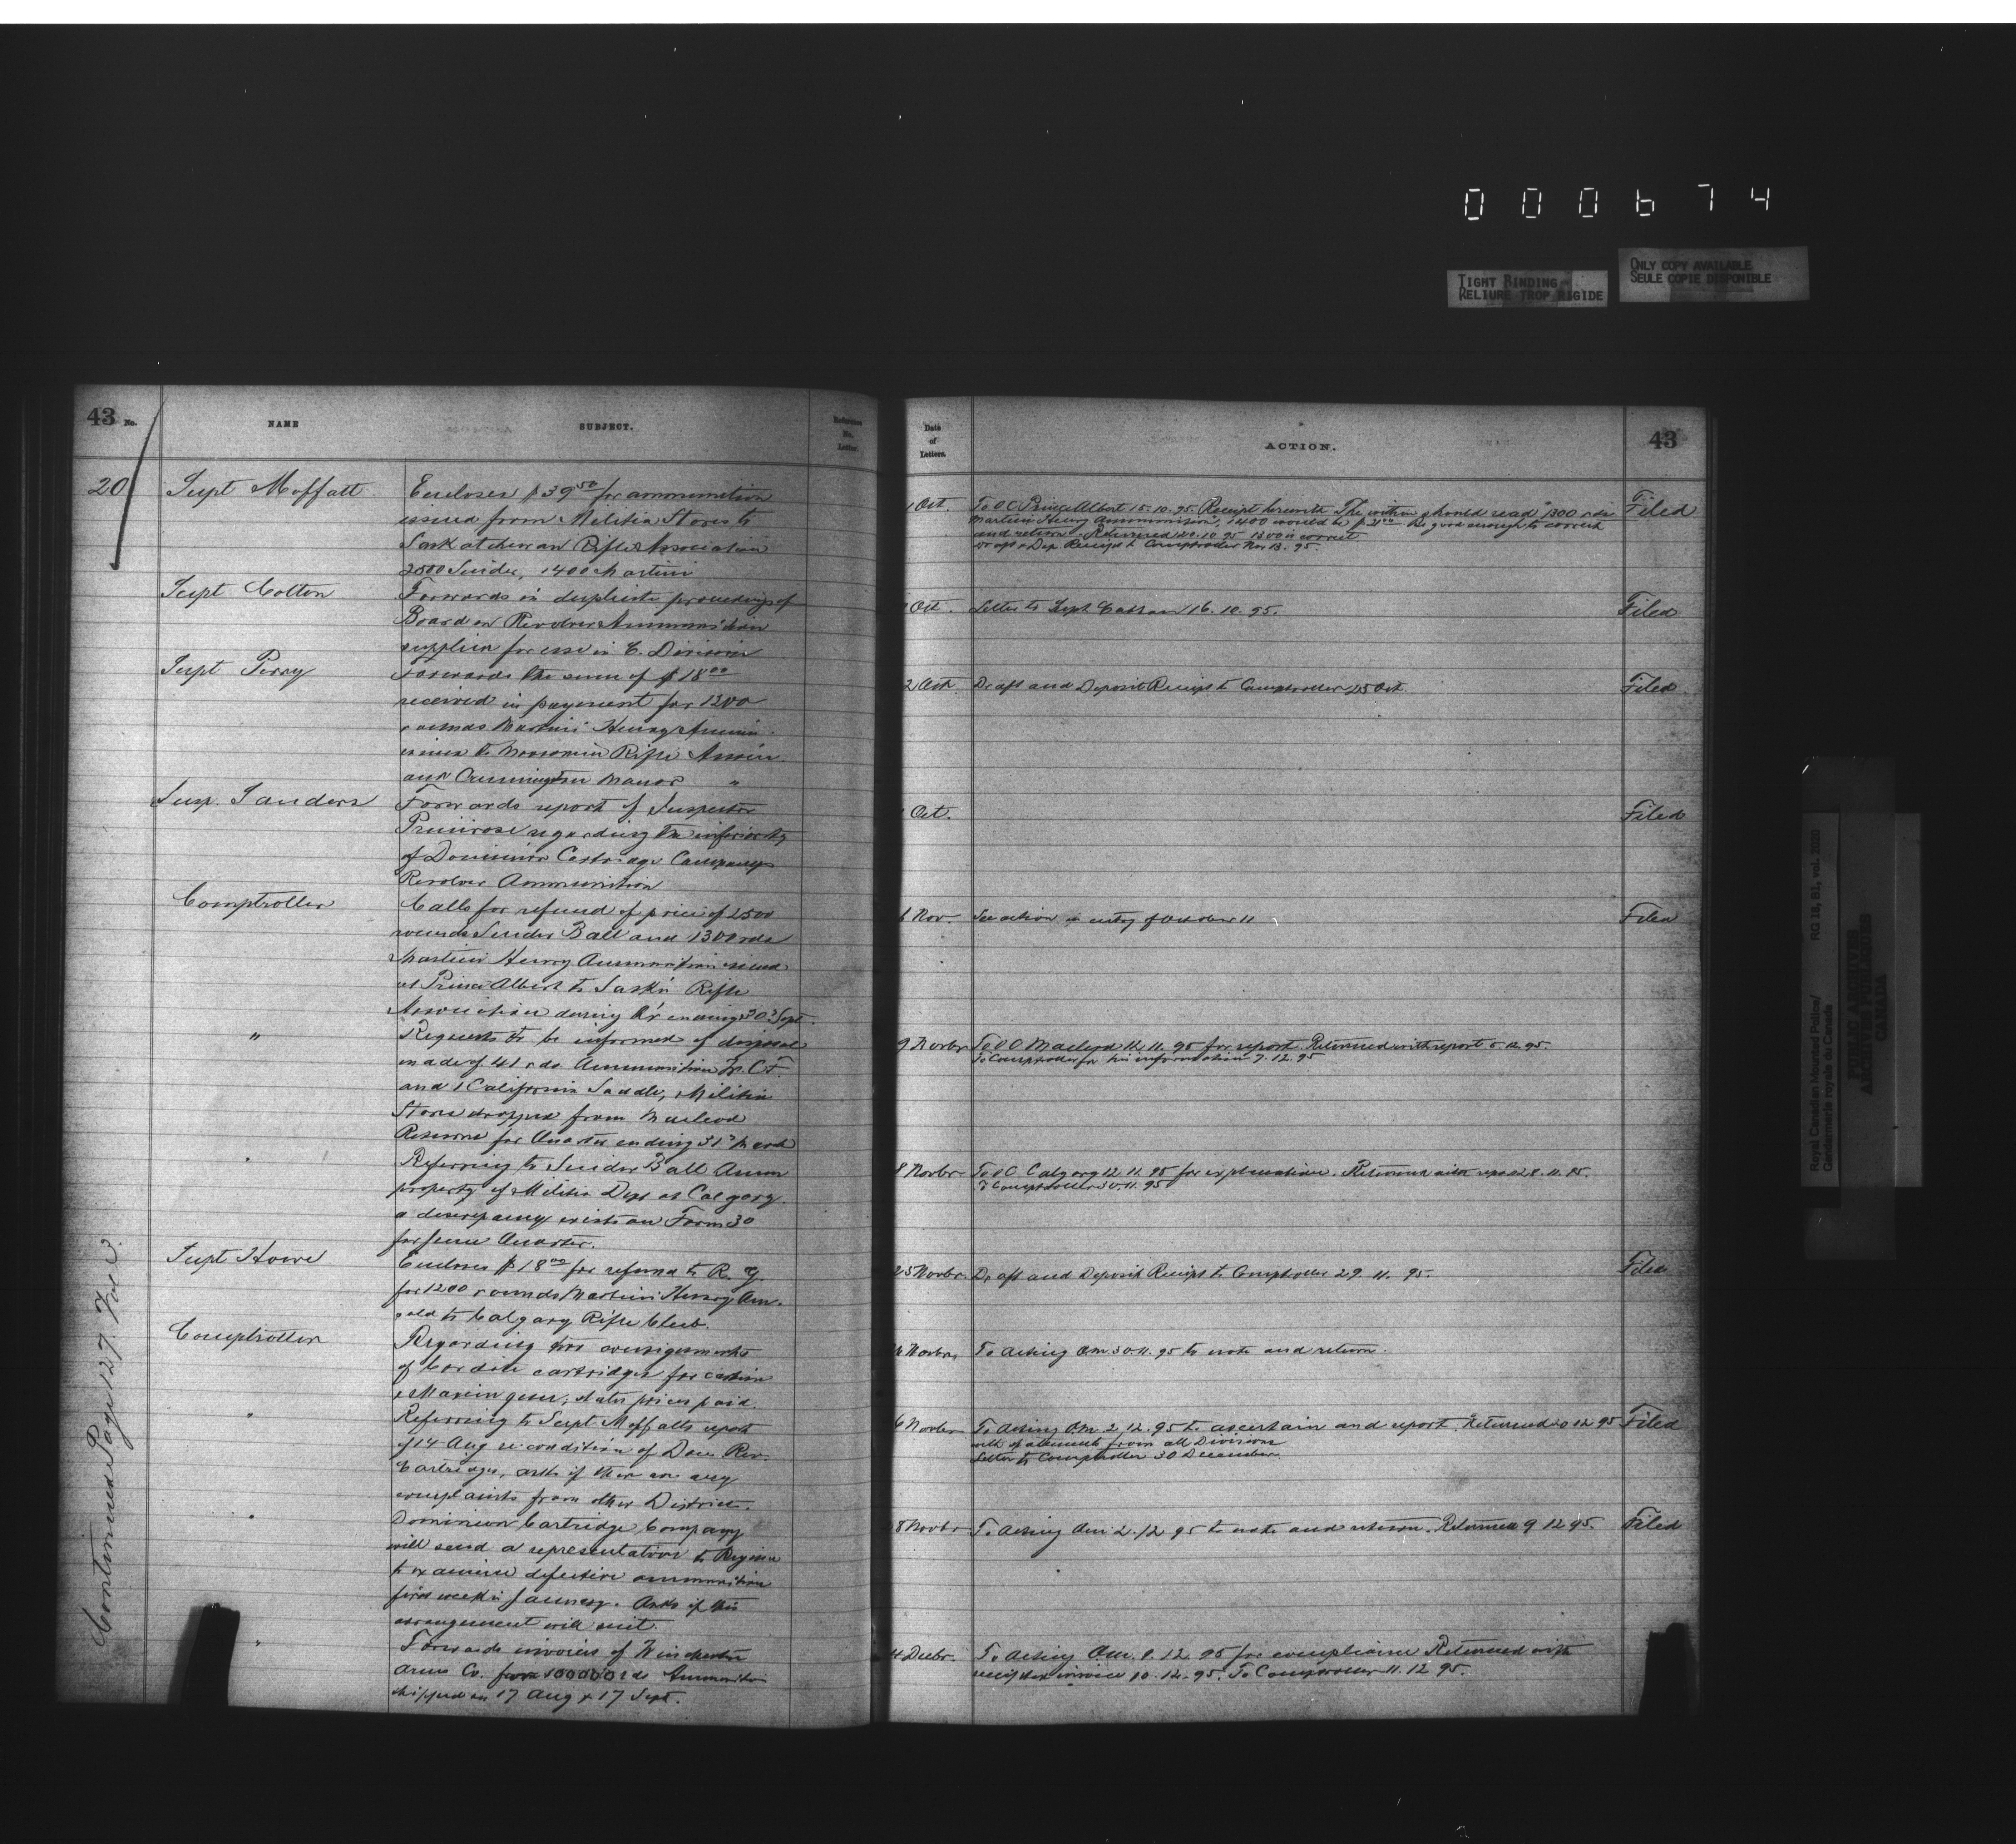 000674
TIGHT BINDING
RELIURE TROP RIGIDE
ONLY COPY AVAILABLE
SEULE COPIE DISPONIBLE
43 No.
NAME
SUBJECT.
Reference No. Letter.
20
Supt Moffatt
Encloses $39.50 for ammunition
issued from Militia Stores to
Saskatchewan Rifle Association
2500 Snider, 1400 Martini
Supt Cotton
Forwards in duplicate proceedings of
Board on Revolver Ammunition
supplied for use in C. Division
Supt Perry
Forwards the sum of $18.00
received in payment for 1200
rounds Martini Henry Ammn.
issued to Moosomin Rifle Assn.
and Cannington Manor "
Insp. Sanders
Forwards report of Inspector
Primrose regarding the inferiority
of Dominion Cartridge Companys
Revolver Ammunition
Comptroller
Calls for refund of price of 2500
rounds Snider Ball and 1300 rds
Martini Henry Ammunition issued
at Prince Albert to Sask'n Rifle
Association during Q'r ending 30 Sept.
"
Requests to be informed of disposal
made of 41 rds. Ammunition W. C.F.
and 1 California Saddle, Militia
Stores dropped from Macleod
Returns for Quarter ending 31 March
"
Referring to Snider Ball Ammn
property of Militia Dept at Calgary.
a discrepancy exists on Form 30
for June Quarter.
Supt Howe
Encloses $18.00 for refund to R. G.
for 1200 rounds Martini Henry Am.
sold to Calgary Rifle Club.
Comptroller
Regarding two consignments
of Cordite cartridges for carbine
& Maxim guns; states prices paid.
"
Referring to Supt Moffatts report
of 14 Aug re condition of Dom. Rev.
Cartridges, asks if there are any
complaints from other District.
"
Dominion Cartridge Company
will send a representative to Regina
to examine defective ammunition
first week in January. Asks if this
arrangement will suit.
"
Forwards invoices of Winchester
Arms Co. for 100000 rds Ammunition
shipped on 17 Aug & 17 Sept.
Continued Page 127.
Date of Letters.
ACTION.
43
1 Oct.
To O C Prince Albert 15.10.95. Receipt herewith. The within should read "1300 rds
Martini Henry Ammunition, 1400 would be $21.00. Be good enough to correct
and return. Returned 10.95 1300 is correct
Draft & Dep. Receipt to Comptroller Nov 13. 95.
Filed
Oct.
Letter to Supt Cotton 16.10.95.
Filed
2 Oct.
Draft and Deposit Receipt to Comptroller 25 Oct.
Filed
Oct.
Filed
6 Nov
See action in entry of October 11
Filed
9 Novbr
To O C Macleod 12.11.95 for report. Returned with report 5.12.95.
To Comptroller for his information 7.12.95
8 Novbr
To O C Calgary 12.11.95 for explanation. Returned with report 28.11.95.
To Comptroller 30.11.95
25 Novbr.
Draft and Deposit Receipt to Comptroller 29.11.95.
Filed
Novbr.
To Acting Q.M. 30.11.95 to note and return.
6 Novbr
To Acting Q.M. 2.12.95 to ascertain and report. Returned 20 12 95
with statements from all Divisions
Letter to Comptroller 30 December
Filed
8 Novbr
To Acting Qm 2.12 95 to note and return. Returned 9 12 95.
Filed
4 Decbr.
To Acting Q.M. 9.12.95 for compliance Returned with
receipted invoice 10.12.95. To Comptroller 11.12 95.
Royal Canadian Mounted Police/
Gendarmerie royale du Canada
RG 18, B1, vol. 2020
PUBLIC ARCHIVES
ARCHIVES PUBLIQUES
CANADA